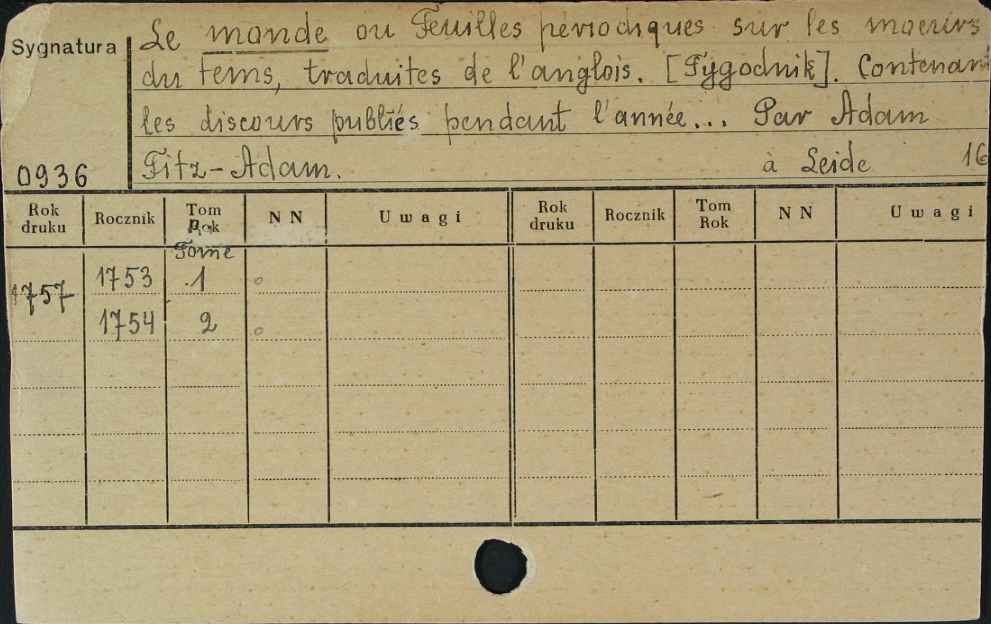 Sygnatura
Le monde ou Feuilles périodiques sur les moeurs
du tems, traduites de l'anglois. [Tygodnik]. Contenant
les discours publiés pendant l'année... Par Adam
Fitz-Adam. à Leide 16
0936
Rok druku Rocznik Tom Rok NN Uwagi Rok druku Rocznik Tom Rok NN Uwagi
Tome
1757 1753 1
1754 2